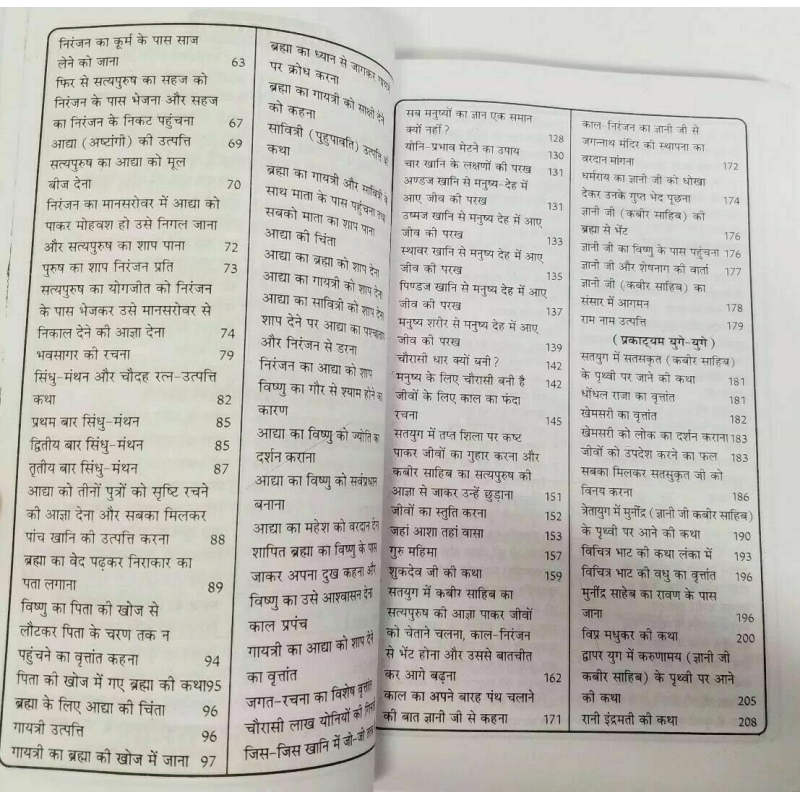 निरंजन का कूर्म के पास साज
लेने को जाना 63
फिर से सत्यपुरुष का सहज को
निरंजन के पास भेजना और सहज
का निरंजन के निकट पहुंचना 67
आद्या (अष्टांगी) की उत्पत्ति 69
सत्यपुरुष का आद्या को मूल
बीज देना 70
निरंजन का मानसरोवर में आद्या को
पाकर मोहवश हो उसे निगल जाना
और सत्यपुरुष का शाप पाना 72
पुरुष का शाप निरंजन प्रति 73
सत्यपुरुष का योगजीत को निरंजन
के पास भेजकर उसे मानसरोवर से
निकाल देने की आज्ञा देना 74
भवसागर की रचना 79
सिंधु-मंथन और चौदह रत्न-उत्पत्ति
कथा 82
प्रथम बार सिंधु-मंथन 85
द्वितीय बार सिंधु-मंथन 85
तृतीय बार सिंधु-मंथन 87
आद्या को तीनों पुत्रों को सृष्टि रचने
की आज्ञा देना और सबका मिलकर
पांच खानि की उत्पत्ति करना 88
ब्रह्मा का वेद पढ़कर निराकार का
पता लगाना 89
विष्णु का पिता की खोज से
लौटकर पिता के चरण तक न
पहुंचने का वृत्तांत कहना 94
पिता की खोज में गए ब्रह्मा की कथा95
ब्रह्मा के लिए आद्या की चिंता 96
गायत्री उत्पत्ति 96
गायत्री का ब्रह्मा की खोज में जाना 97
ब्रह्मा का ध्यान से जागकर
पर क्रोध करना
ब्रह्मा का गायत्री को साक्षी देने
को कहना
सावित्री (पुहुपावति) उत्पत्ति की
कथा
ब्रह्मा का गायत्री और सावित्री के
साथ माता के पास पहुंचना तथा
सबको माता का शाप पाना
आद्या की चिंता
आद्या का ब्रह्मा को शाप देना
आद्या का गायत्री को शाप देना
आद्या का सावित्री को शाप देना
शाप देने पर आद्या का पश्चाताप
और निरंजन से डरना
निरंजन का आद्या को शाप
विष्णु का गौर से श्याम होने का
कारण
आद्या का विष्णु को ज्योति का
दर्शन कराना
आद्या का विष्णु को सर्वप्रधान
बनाना
आद्या का महेश को वरदान देना
शापित ब्रह्मा का विष्णु के पास
जाकर अपना दुख कहना और
विष्णु का उसे आश्वासन देना
काल प्रपंच
गायत्री का आद्या को शाप देने
का वृत्तांत
जगत-रचना का विशेष वृत्तांत
चौरासी लाख योनियों की गिनती
जिस-जिस खानि में जो-जो
सब मनुष्यों का ज्ञान एक समान
क्यों नहीं? 128
योनि-प्रभाव मेटने का उपाय 130
चार खानि के लक्षणों की परख 131
अण्डज खानि से मनुष्य-देह में
आए जीव की परख 131
उष्मज खानि से मनुष्य देह में आए
जीव की परख 133
स्थावर खानि से मनुष्य देह में आए
जीव की परख 135
पिण्डज खानि से मनुष्य देह में आए
जीव की परख 137
मनुष्य शरीर से मनुष्य देह में आए
जीव की परख 139
चौरासी धार क्यों बनी? 142
मनुष्य के लिए चौरासी बनी है 142
जीवों के लिए काल का फंदा
रचना 145
सतयुग में तप्त शिला पर कष्ट
पाकर जीवों का गुहार करना और
कबीर साहिब का सत्यपुरुष की
आज्ञा से जाकर उन्हें छुड़ाना 151
जीवों का स्तुति करना 152
जहां आशा तहां वासा 153
गुरु महिमा 157
शुकदेव जी की कथा 159
सतयुग में कबीर साहिब का
सत्यपुरुष की आज्ञा पाकर जीवों
को चेताने चलना, काल-निरंजन
से भेंट होना और उससे बातचीत
कर आगे बढ़ना 162
काल का अपने बारह पंथ चलाने
की बात ज्ञानी जी से कहना 171
काल-निरंजन का ज्ञानी जी से
जगन्नाथ मंदिर की स्थापना का
वरदान मांगना 172
धर्मराय का ज्ञानी जी को धोखा
देकर उनके गुप्त भेद पूछना 174
ज्ञानी जी (कबीर साहिब) की
ब्रह्मा से भेंट 176
ज्ञानी जी का विष्णु के पास पहुंचना 176
ज्ञानी जी और शेषनाग की वार्ता 177
ज्ञानी जी (कबीर साहिब) का
संसार में आगमन 178
राम नाम उत्पत्ति 179
(प्रकाट्यम युगे-युगे)
सतयुग में सतसकृत (कबीर साहिब)
के पृथ्वी पर जाने की कथा 181
धोंधल राजा का वृत्तांत 181
खेमसरी का वृत्तांत 182
खेमसरी को लोक का दर्शन कराना183
जीवों को उपदेश करने का फल 183
सबका मिलकर सतसुकृत जी को
विनय करना 186
त्रेतायुग में मुनींद्र (ज्ञानी जी कबीर साहिब)
के पृथ्वी पर आने की कथा 190
विचित्र भाट की कथा लंका में 193
विचित्र भाट की वधु का वृत्तांत 196
मुनींद्र साहेब का रावण के पास
जाना 196
विप्र मधुकर की कथा 200
द्वापर युग में करुणामय (ज्ञानी जी
कबीर साहिब) के पृथ्वी पर आने
की कथा 205
रानी इंद्रमती की कथा 208